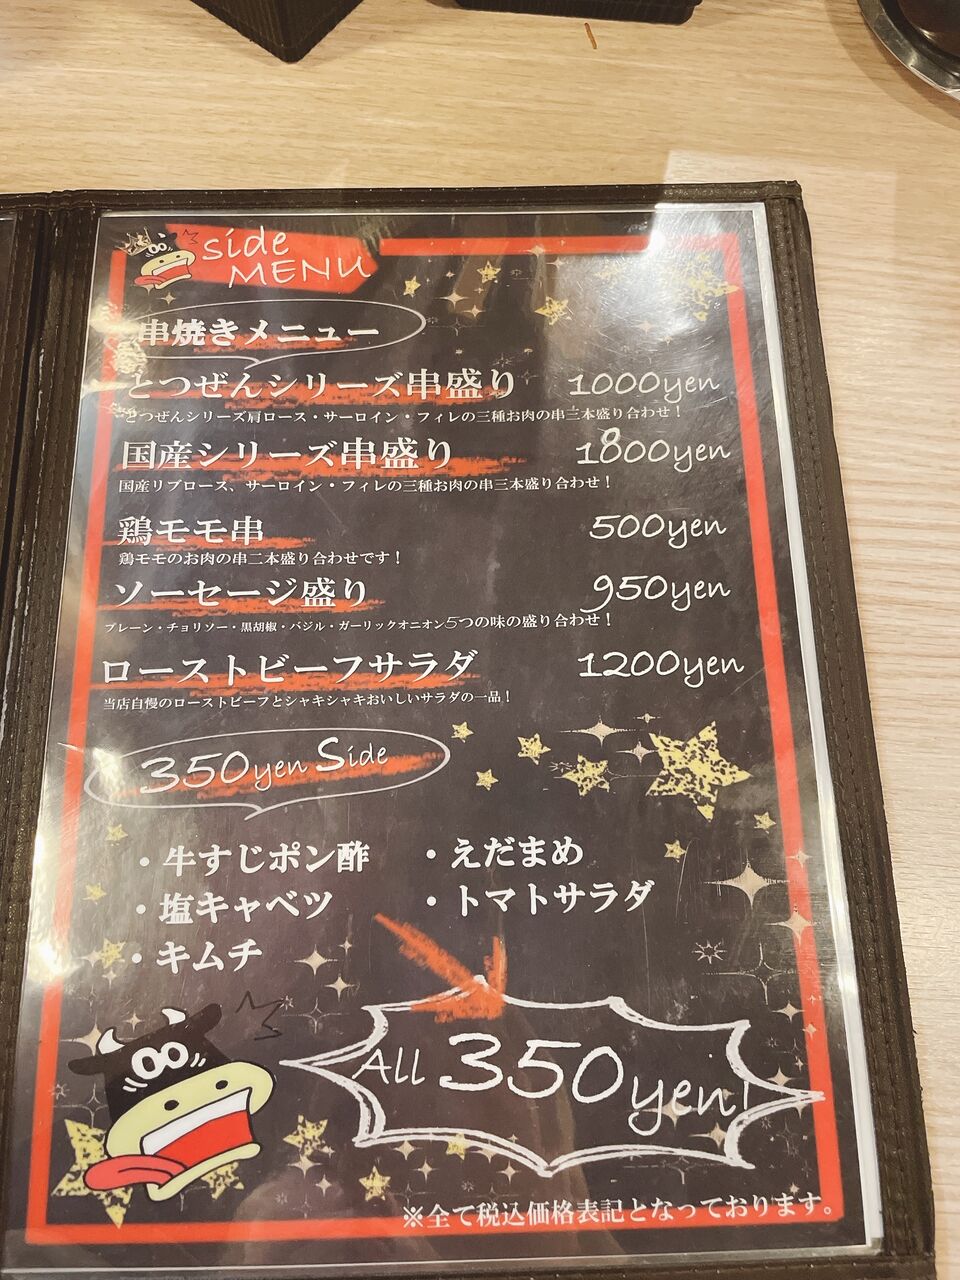 side
MENU
串焼きメニュー
とつぜんシリーズ串盛り 1000yen
とつぜんシリーズ肩ロース・サーロイン・フィレの三種お肉の串三本盛り合わせ！
国産シリーズ串盛り 1800yen
国産リブロース、サーロイン・フィレの三種お肉の串三本盛り合わせ！
鶏モモ串 500yen
鶏モモのお肉の串二本盛り合わせです！
ソーセージ盛り 950yen
プレーン・チョリソー・黒胡椒・バジル・ガーリックオニオン5つの味の盛り合わせ！
ローストビーフサラダ 1200yen
当店自慢のローストビーフとシャキシャキおいしいサラダの一品！
350yen Side
・牛すじポン酢 ・えだまめ
・塩キャベツ ・トマトサラダ
・キムチ
All 350yen!
※全て税込価格表記となっております。